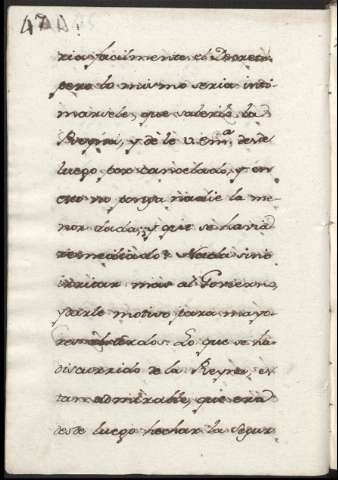 47
ria facilmente el Decreto,
pero lo mismo seria inti-
marsele, que saberlo la
Reyna, y dele V. Em.ª desde
luego por cancelado, y en
esto no ponga nadie la me-
nor duda; y que se havria
remediado? Nada sino
irritar mas al Governo,
y darle motivo para mayo-
res
Lo que se ha
discurrido de la Reyna, es
tan admirable, que era
desde luego hechar la segur